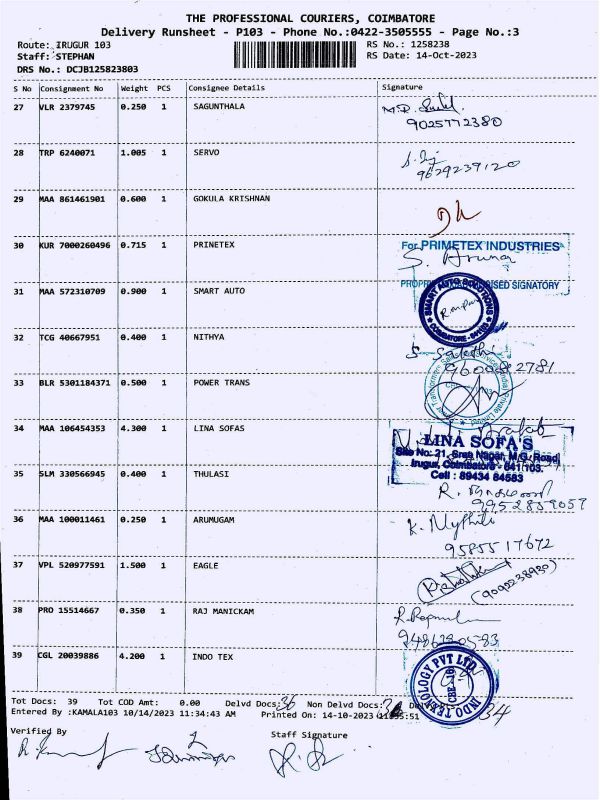 THE PROFESSIONAL COURIERS, COIMBATORE
Delivery Runsheet - P103 - Phone No.:0422-3505555 - Page No.:3
Route: IRUGUR 103 RS No.: 1258238
Staff: STEPHAN RS Date: 14-Oct-2023
DRS No.: DCJB125823803
S No Consignment No Weight PCS Consignee Details Signature
27 VLR 2379745 0.250 1 SAGUNTHALA
9025772380
28 TRP 6240071 1.005 1 SERVO
9629239120
29 MAA 861461901 0.600 1 GOKULA KRISHNAN
30 KUR 7000260496 0.715 1 PRINETEX
For PRIMETEX INDUSTRIES
S. Aruna
SIGNATORY
31 MAA 572310709 0.900 1 SMART AUTO
32 TCG 40667951 0.400 1 NITHYA
33 BLR 5301184371 0.500 1 POWER TRANS
34 MAA 106454353 4.300 1 LINA SOFAS
LINA SOFA'S
Site No: 21, Sree Nagar, M.G. Road,
Irugur, Coimbatore - 641 103.
Cell : 89434 84583
35 SLM 330566945 0.400 1 THULASI
9952859057
36 MAA 100011461 0.250 1 ARUMUGAM
K. Mythili
9585517672
37 VPL 520977591 1.500 1 EAGLE
(9090238930)
38 PRO 15514667 0.350 1 RAJ MANICKAM
39 CGL 20039886 4.200 1 INDO TEX
INDO TEXNOLOGY PVT LTD
Tot Docs: 39 Tot COD Amt: 0.00 Delvd Docs: 36 Non Delvd Docs:
Entered By :KAMALA103 10/14/2023 11:34:43 AM Printed On: 14-10-2023
Verified By Staff Signature